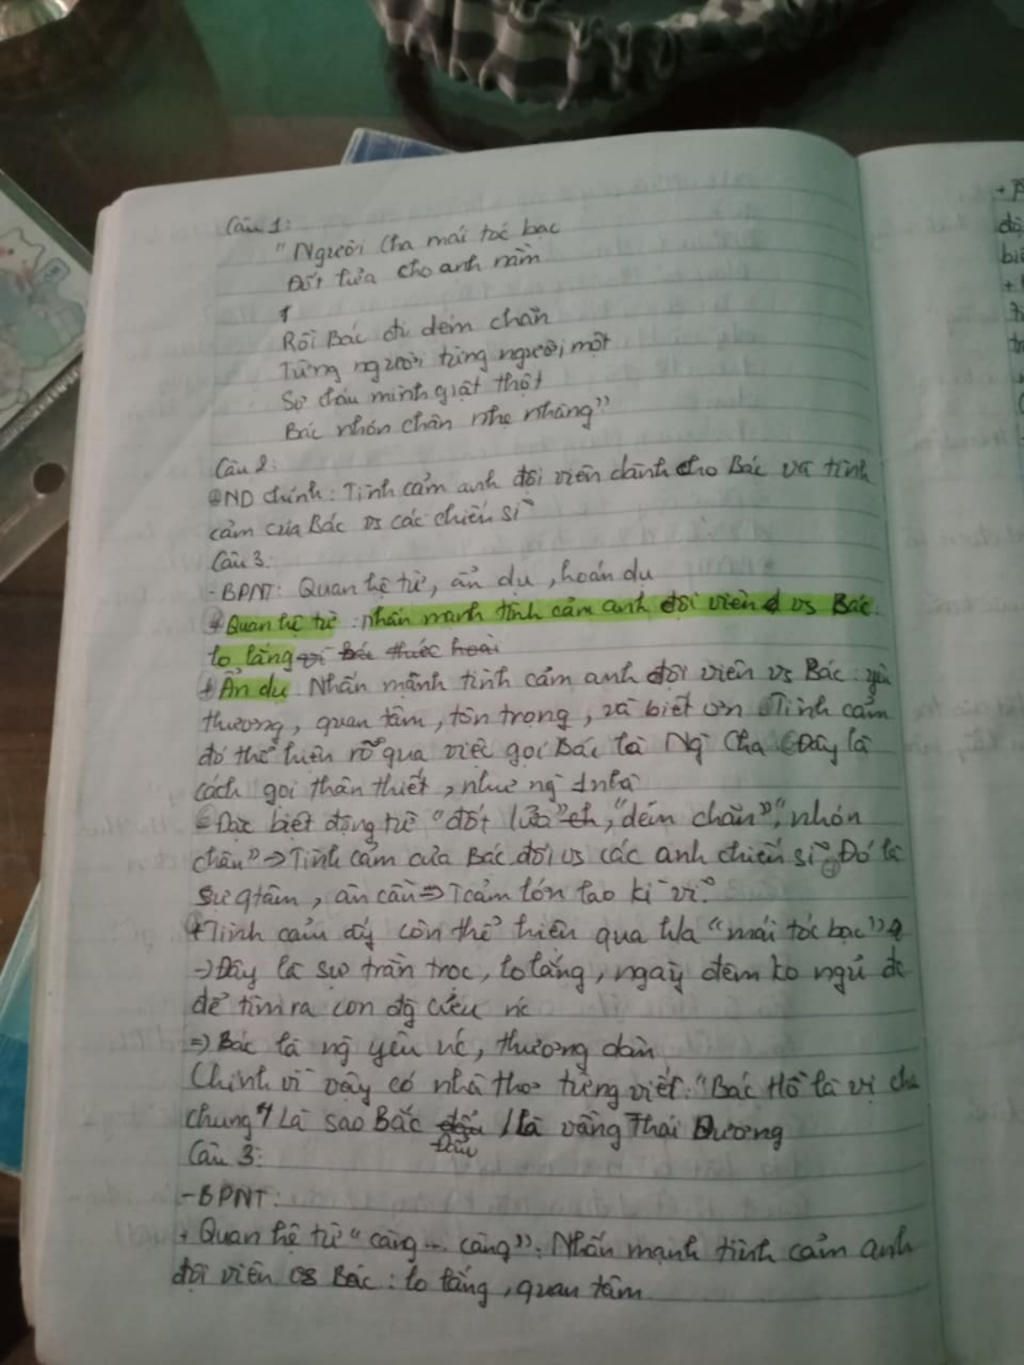 Câu 1:
"Người Cha mái tóc bạc
Đốt lửa cho anh nằm
Rồi Bác đi dém chăn
Từng người từng người một
Sợ cháu mình giật thột
Bác nhón chân nhẹ nhàng"
Câu 2:
ND chính: Tình cảm anh đội viên dành cho Bác và tình
cảm của Bác vs các chiến sĩ
Câu 3:
- BPNT: Quan hệ từ, ẩn dụ, hoán dụ
+ Quan hệ từ: nhấn mạnh tình cảm anh đội viên vs Bác:
lo lắng vì Bác thức hoài
+ Ẩn dụ Nhấn mạnh tình cảm anh đội viên vs Bác: yêu
thương, quan tâm, tôn trọng, và biết ơn Tình cảm
đó thể hiện rõ qua việc gọi Bác là Ng` Cha Đây là
cách gọi thân thiết, như ng` 1 nhà
- Đặc biệt động từ "đốt lửa", "dém chăn", "nhón
chân" → Tình cảm của Bác đối vs các anh chiến sĩ. Đó là
sự qtâm, ân cần ⇒ Tcảm lớn lao kì vĩ.
+ Tình cảm ấy còn thể hiện qua h/a "mái tóc bạc"
→ Đây là sự trằn trọc, lo lắng, ngày đêm ko ngủ
để tìm ra con đg cứu nc
⇒ Bác là ng yêu nc, thương dân
Chính vì vậy có nhà thơ từng viết: "Bác Hồ là vị cha
chung / Là sao Bắc Đẩu / là vầng Thái Dương
Câu 3:
- BPNT:
+ Quan hệ từ "càng ... càng": Nhấn mạnh tình cảm anh
đội viên vs Bác: lo lắng, quan tâm